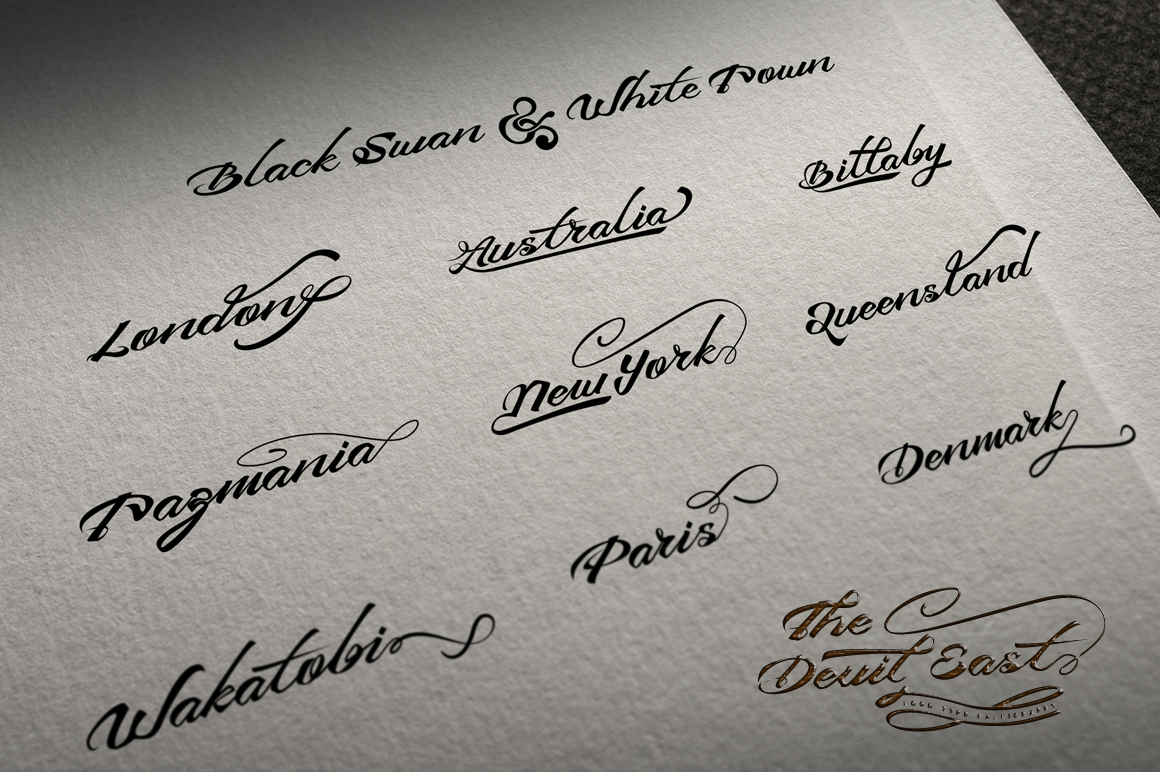 Black Swan & White Town
Bittaby
Australia
London
Queensland
New York
Tazmania
Denmark
Paris
Wakatobi
The
Devil East
LOGO TYPE CALLIGRAPHY